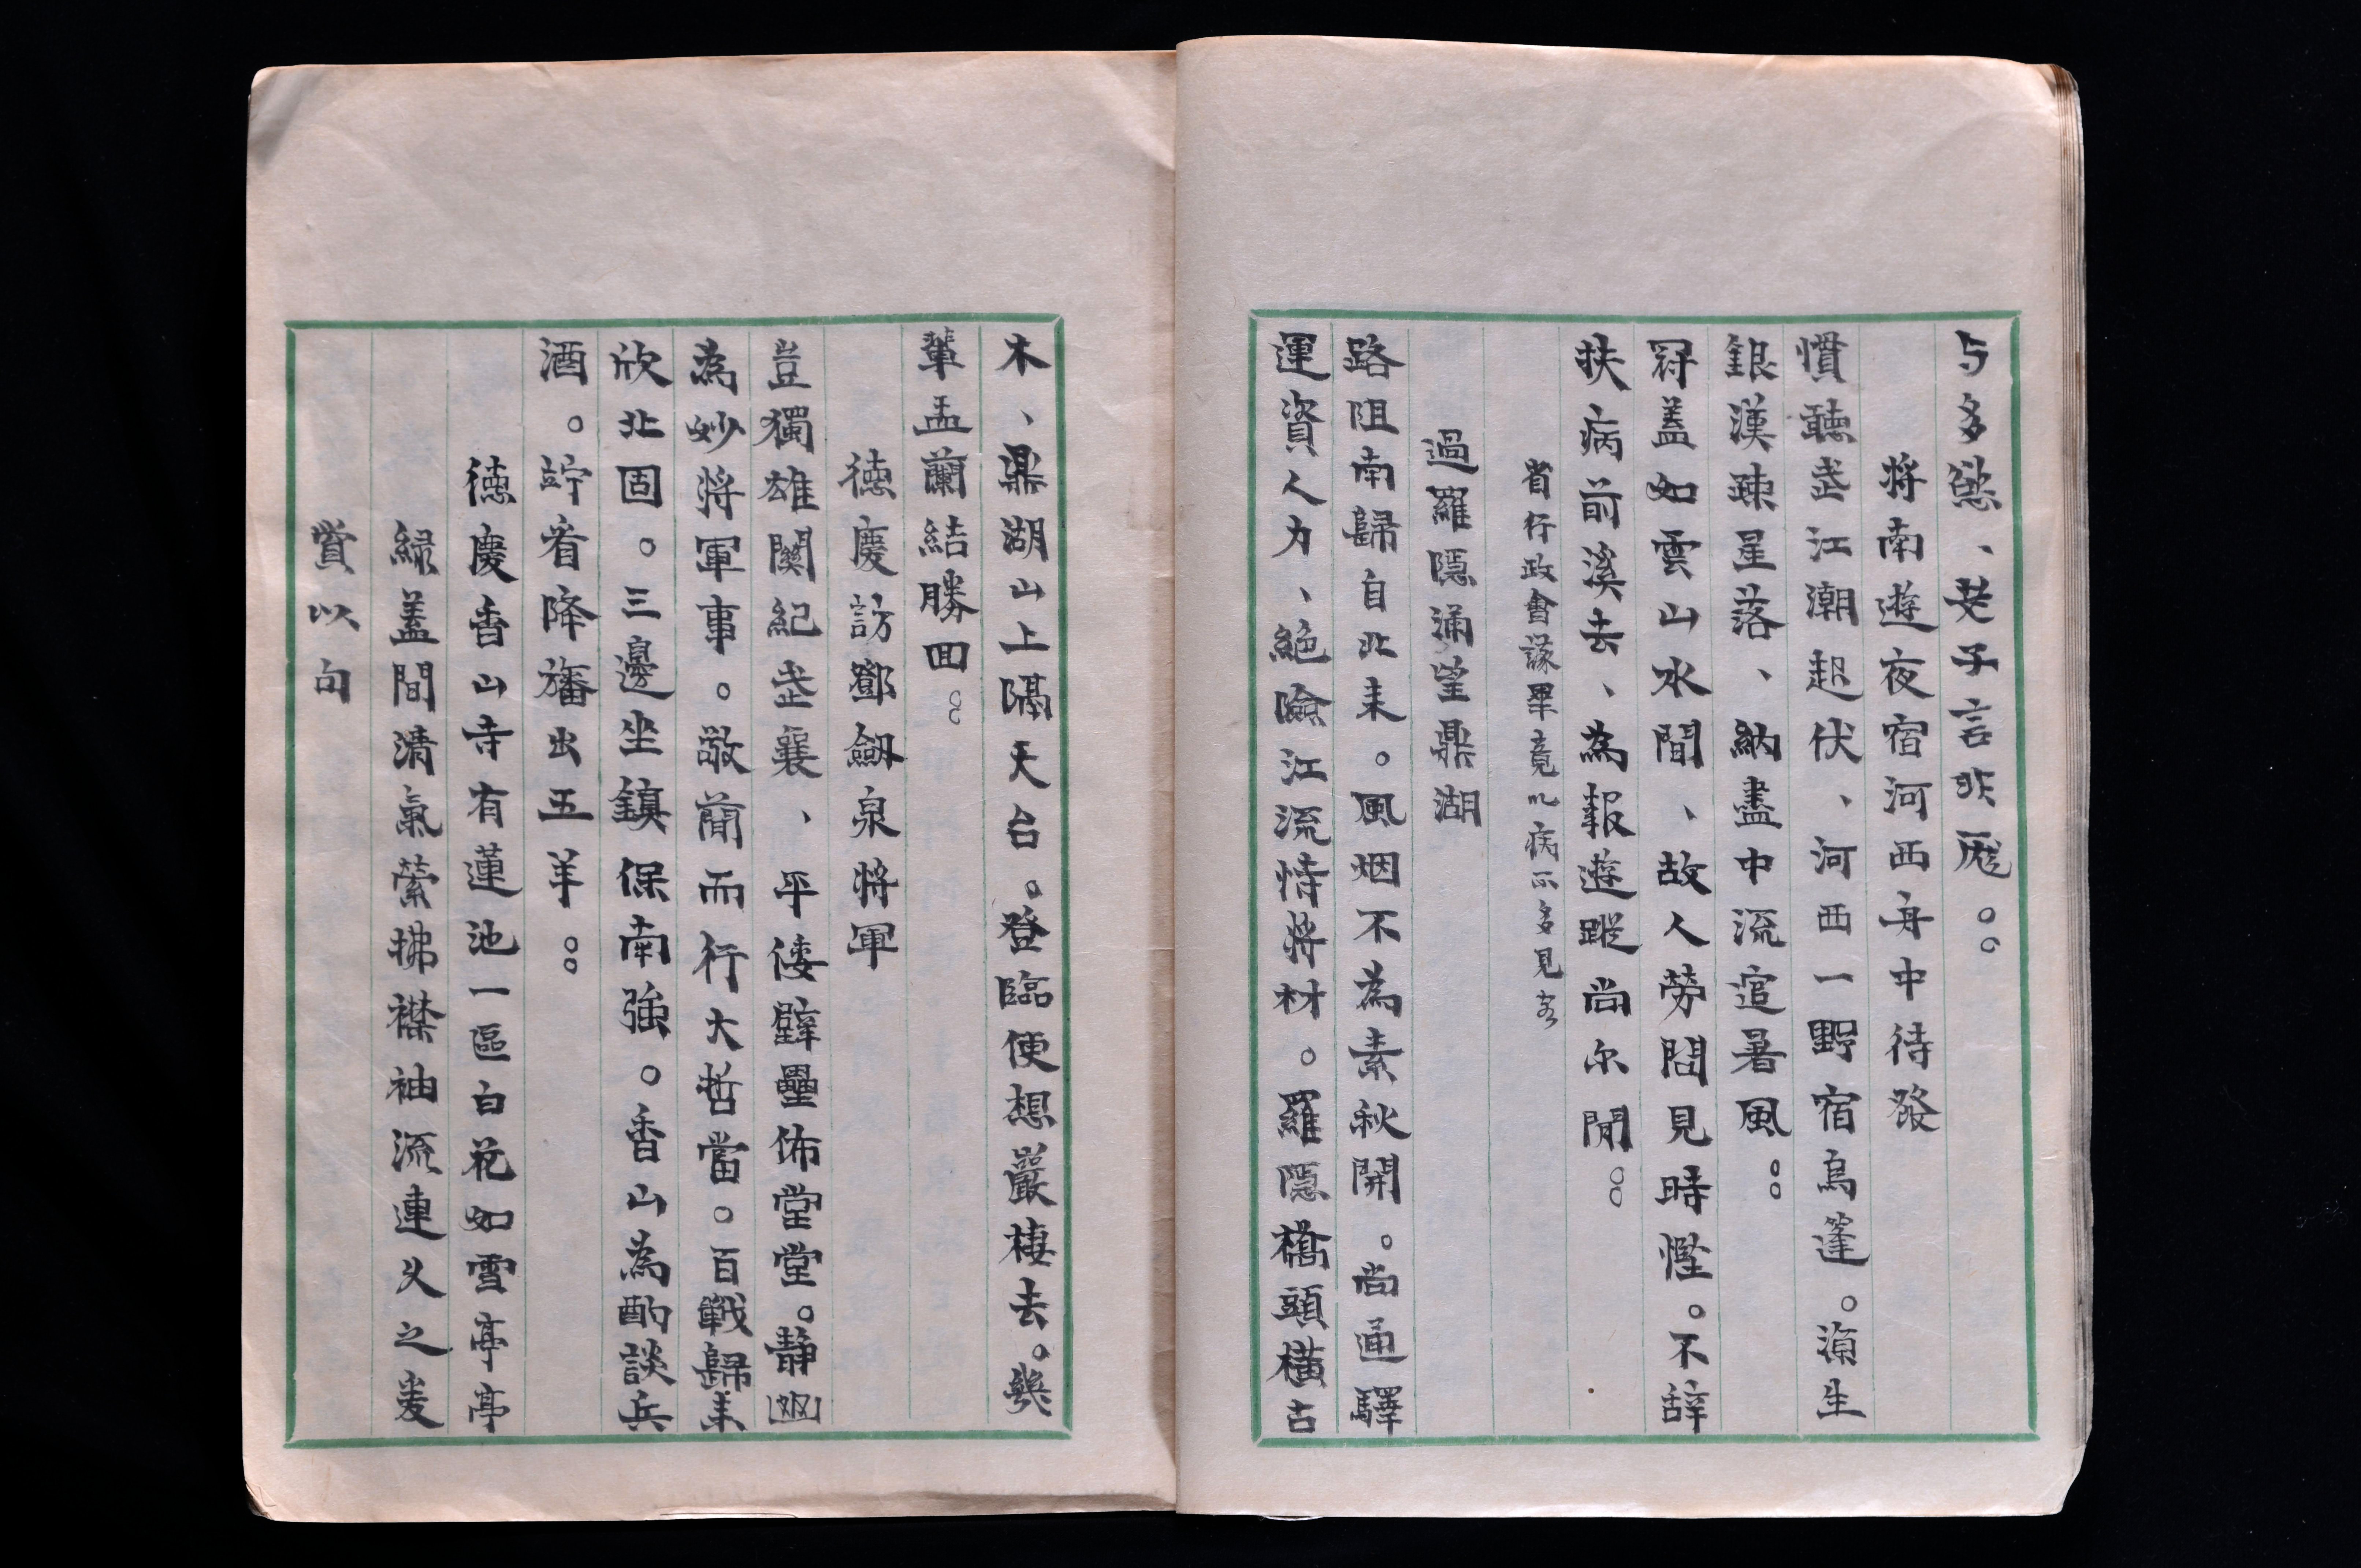 与多慾、老子言非厖。。
將南遊夜宿河西舟中待發
慣聽武江潮起伏、河西一野宿烏篷。須生
銀漢疎星落、納盡中流這暑風。。
冠蓋如雲山水間、故人勞問見時慳。不辞
扶病前溪去、為報遊蹤尚尔閒。。
省行政會議畢竟以病不多見客
過羅隱涌望鼎湖
路阻南歸自北来。風烟不為素秋開。尚通驛
運資人力、絕險江流恃將材。羅隱橋頭橫古
木、鼎湖山上隔天台。登臨便想巖棲去。幾
輩盂蘭結勝回。。
德慶訪鄧劔泉將軍
豈獨雄關紀武襄、平倭壁壘佈堂堂。静幽
為妙將軍事。敬蕳而行大哲當。百戰歸来
欣北固。三邊坐鎮保南強。香山為酌談兵
酒。竚看降旛出五羊。。
德慶香山寺有蓮池一區白花如雪亭亭
緑蓋間清氣縈拂襟袖流連久之爰
賞以句